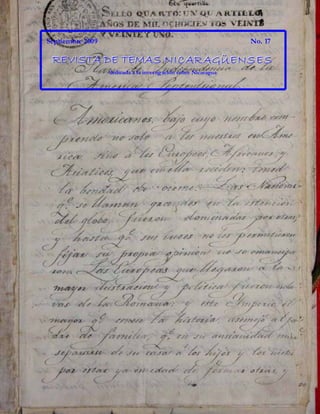 SELLO QUARTO: UN QUARTILLO
AÑOS DE MIL OCHOCIENTOS VEINTE
Y VEINTE Y UNO.
Septiembre 2009 No. 17
REVISTA DE TEMAS NICARAGÜENSES
dedicada a la investigación sobre Nicaragua
de la
America
Americanos, bajo cuyo nombre com-
prendo no solo a los nuestros en Ame-
rica sino á los Europeos, Africanos, y
Asiaticos, que en ella
la bondad de Las Naciones
qe. se llaman grandes en la
del globo, fueron dominadas por otras,
y hasta qe. sus luces no les permitieron
fijar su propia opinion no se emancipa-
ron. Las Europeas que llegaron á la
mayor ilustracion y politica fueron escla-
vas de la Romana; y este Imperio el
mayor qe. la historia, al pa-
dre de familia, qe. en su ancianidad mira
separarse de su casa á los hijos y los nietos
por estar ya en edad de formar otras, y